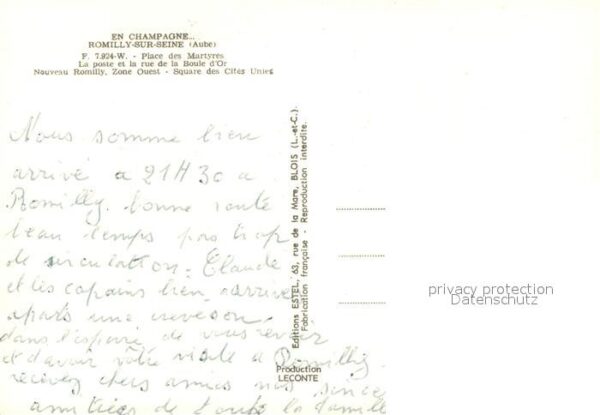 EN CHAMPAGNE...
ROMILLY-SUR-SEINE (Aube)
F. 7.924-W. - Place des Martyres
La poste et la rue de la Boule d'Or
Nouveau Romilly, Zone Ouest - Square des Cités Unies
Nous somme bien
arrivé a 21H30 a
Romilly. bonne route
beau temps pas trop
de circulation. Claude
et les copains bien arrivé
aparts une
dans l'espoire de vous revoir
et d'avoir vôtre visite a Romilly.
recevez chers amies nos sincer
amitiés de toute la famille
Editions ESTEL, 63, rue de la Mare, BLOIS (L.-et-C.)
Fabrication française - Reproduction interdite.
Production
LECONTE
privacy protection
Datenschutz